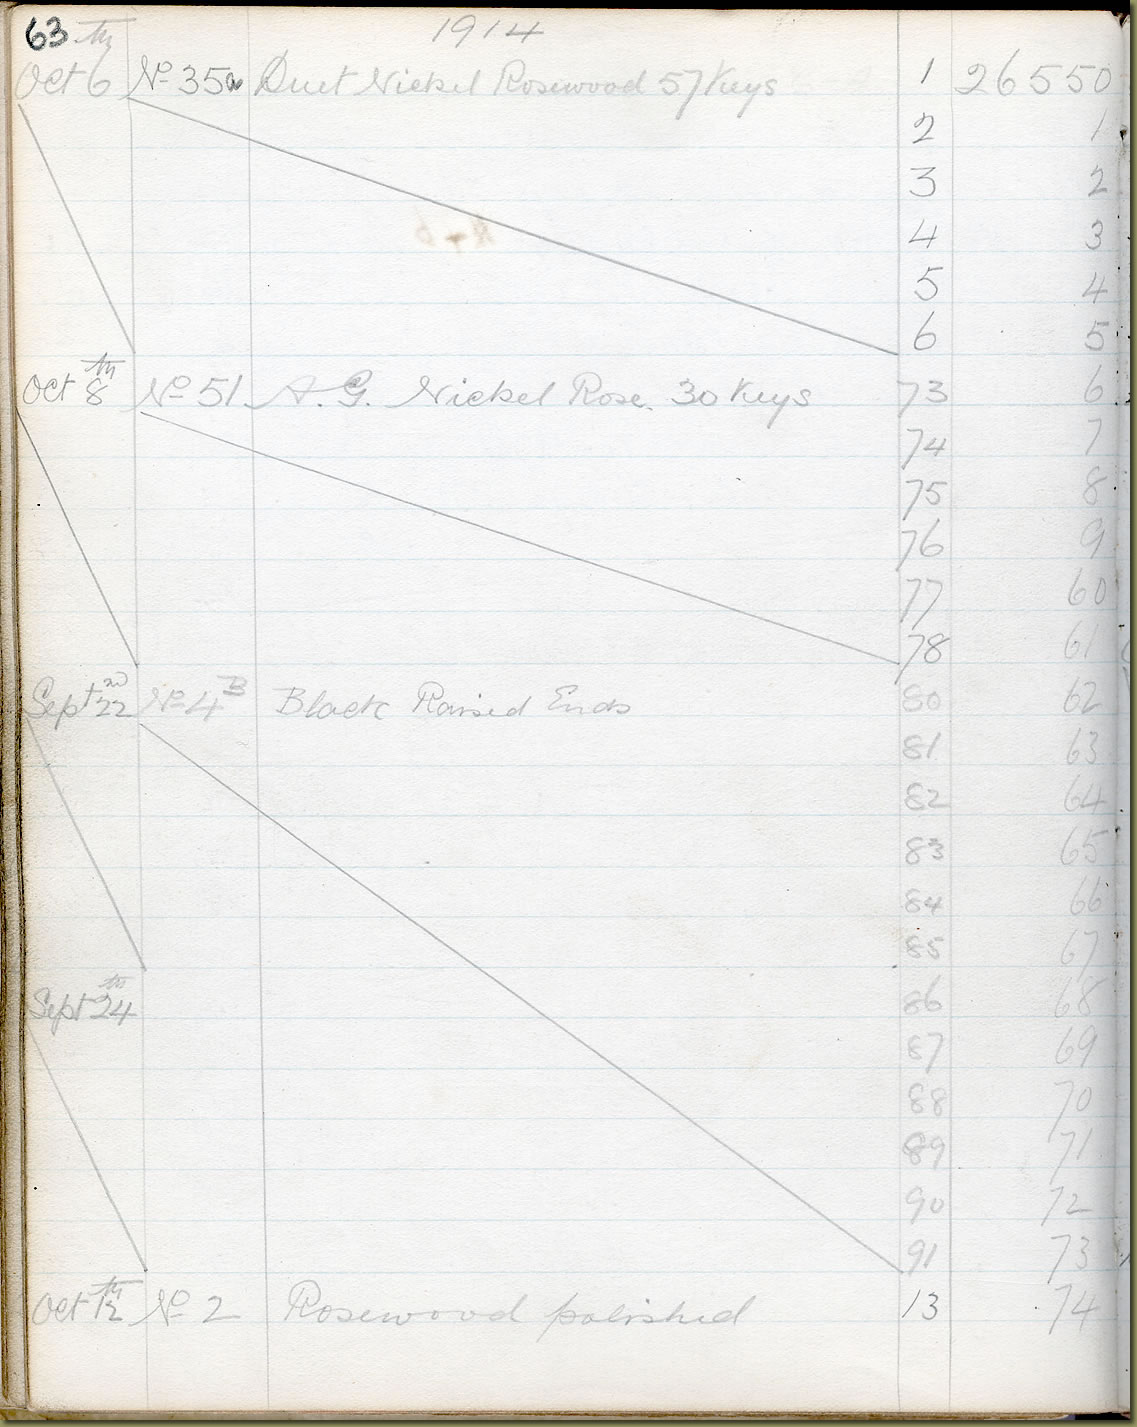 63 1914
Oct 6th No 35a Duet Nickel Rosewood 57 Keys 1 26550
2 1
3 2
4 3
5 4
6 5
Oct 8th No 51 A. G. Nickel Rose. 30 Keys 73 6
74 7
75 8
76 9
77 60
78 61
Sept 22nd No 4B Black Raised Ends 80 62
81 63
82 64
83 65
84 66
85 67
Sept 24th 86 68
87 69
88 70
89 71
90 72
91 73
Oct 12th No 2 Rosewood polished 13 74